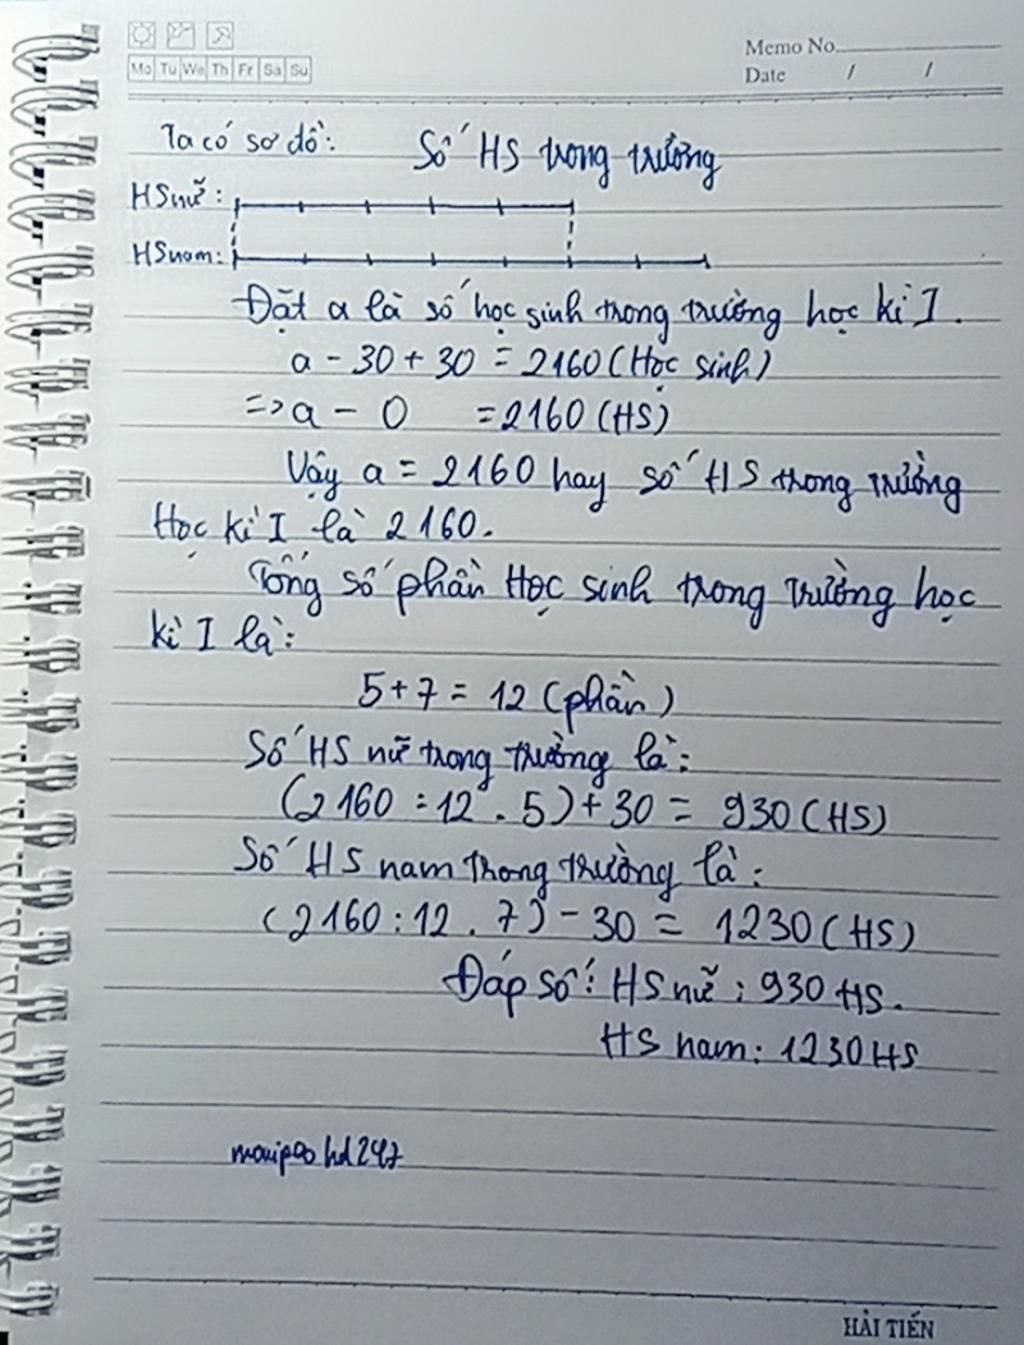 Memo No.
Mo Tu We Th Fr Sa Su
Date / /
Ta có sơ đồ: Số HS trong trường
HS nữ:
HS nam:
Đặt a là số học sinh trong trường học kì I.
a - 30 + 30 = 2160 (Học sinh)
=> a - 0 = 2160 (HS)
Vậy a = 2160 hay số HS trong trường
Học kì I là 2160.
Tổng số phần Học sinh trong trường học
kì I là:
5 + 7 = 12 (phần)
Số HS nữ trong trường là:
(2160 : 12 . 5) + 30 = 930 (HS)
Số HS nam trong trường là:
(2160 : 12 . 7) - 30 = 1230 (HS)
Đáp số: HS nữ: 930 HS.
HS nam: 1230 HS
HẢI TIẾN